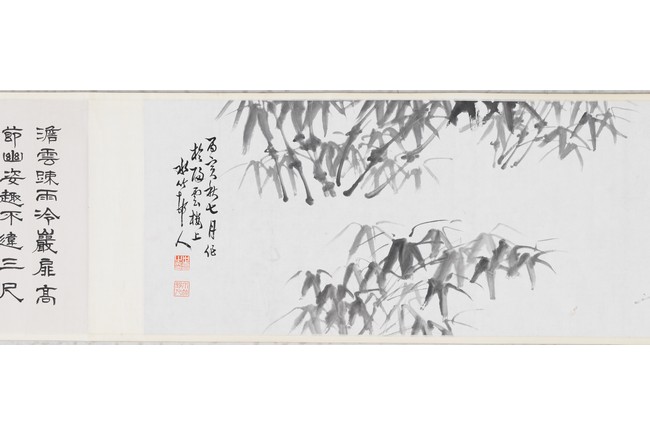 丙寅秋七月作
於歸雲樓上
水竹邨人
澹雲疎雨冷巖扉高
節幽姿趣不違三尺